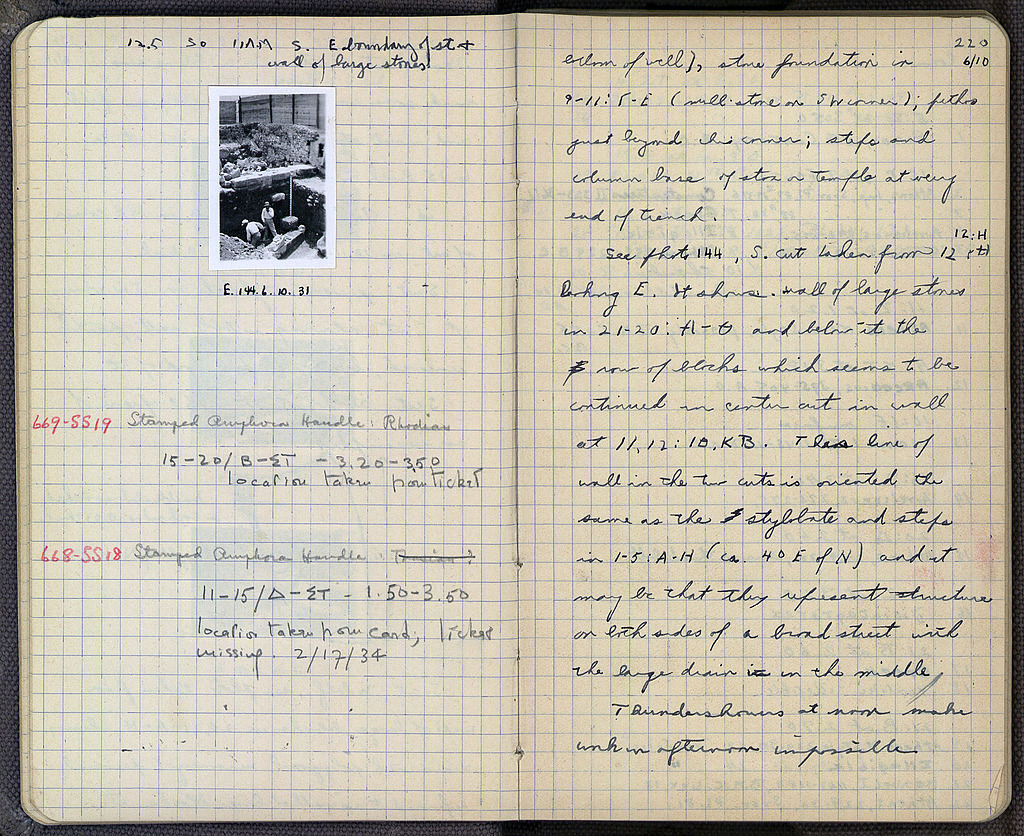 12.5 50 11AM S. E boundary of st +
wall of large stones
E. 144. 6. 10. 31
669-SS19 Stamped Amphora Handle: Rhodian
15-20/B-ΣΤ - 3.20-3.50
location taken from ticket
668-SS18 Stamped Amphora Handle:
11-15/Δ-ΣΤ - 1.50-3.50
location taken from card, ticket
missing. 2/17/34
220
6/10
bottom of well), stone foundation in
9-11: F-E (mill-stone on SW corner); pithos
just beyond this corner; steps and
column base of stoa or temple at very
end of trench.
See photo 144, S. cut taken from 12
12:H
looking E. It shows wall of large stones
in 21-20: H-Θ and below it the
row of blocks which seems to be
continued in center cut in wall
at 11, 12: KB. This line of
wall in the two cuts is oriented the
same as the stylobate and steps
in 1-5: A-H (ca. 40 E of N) and it
may be that they represent structure
on both sides of a broad street with
the large drain in the middle.
Thundershowers at noon make
work in afternoon impossible